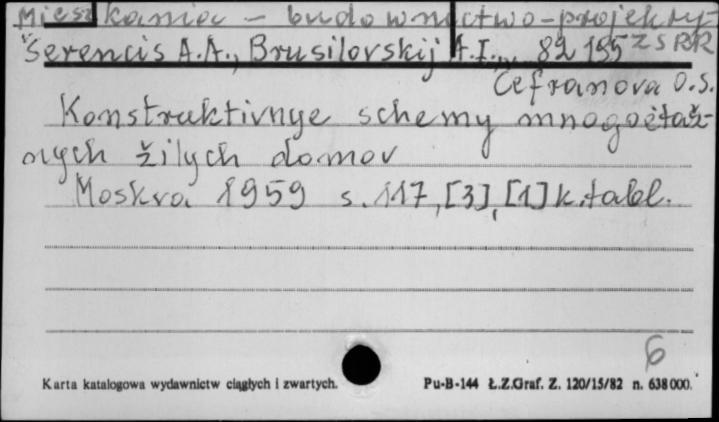 Mieszkania – budownictwo – projekty –
Šerencis A.A., Brusilovskij A.I., 82 195 ZSRR
Čefranova O.S.
Konstruktivnye schemy mnogoètaž-
nych žilych domov
Moskva 1959 s. 117, [3], [1] k. tabl.
6
Karta katalogowa wydawnictw ciągłych i zwartych.
Pu-B-144 Ł.Z.Graf. Z. 120/15/82 n. 638000.